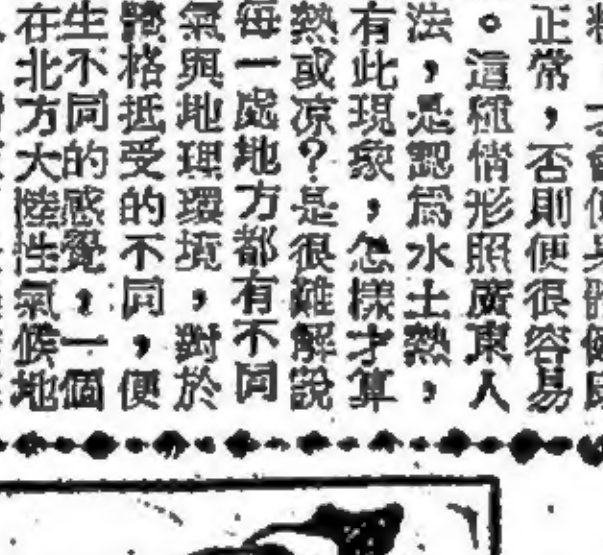 才會使身體健康
正常，否則便很容易
。這種情形照廣東人
法，是認爲水土熱，
有此現象，怎樣才算
熱或凉？是很難解說
每一處地方都有不同
氣與地理環境，對於
體格抵受的不同，便
生不同的感覺，一個
在北方大陸性氣候地